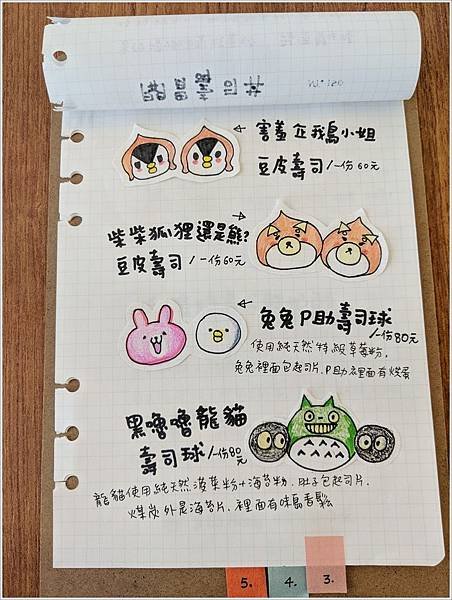 害羞企鵝小姐
豆皮壽司/一份60元
柴柴狐狸還是熊?
豆皮壽司/一份60元
兔兔P助壽司球
/一份80元
使用純天然特級草莓粉,
兔兔裡面包起司片.P助裡面有炸蛋
黑嚕嚕龍貓
壽司球/一份80元
龍貓使用純天然菠菜粉+海苔粉.肚子包起司片.
煤炭外是海苔片.裡面有味島香鬆
5.
4.
3.